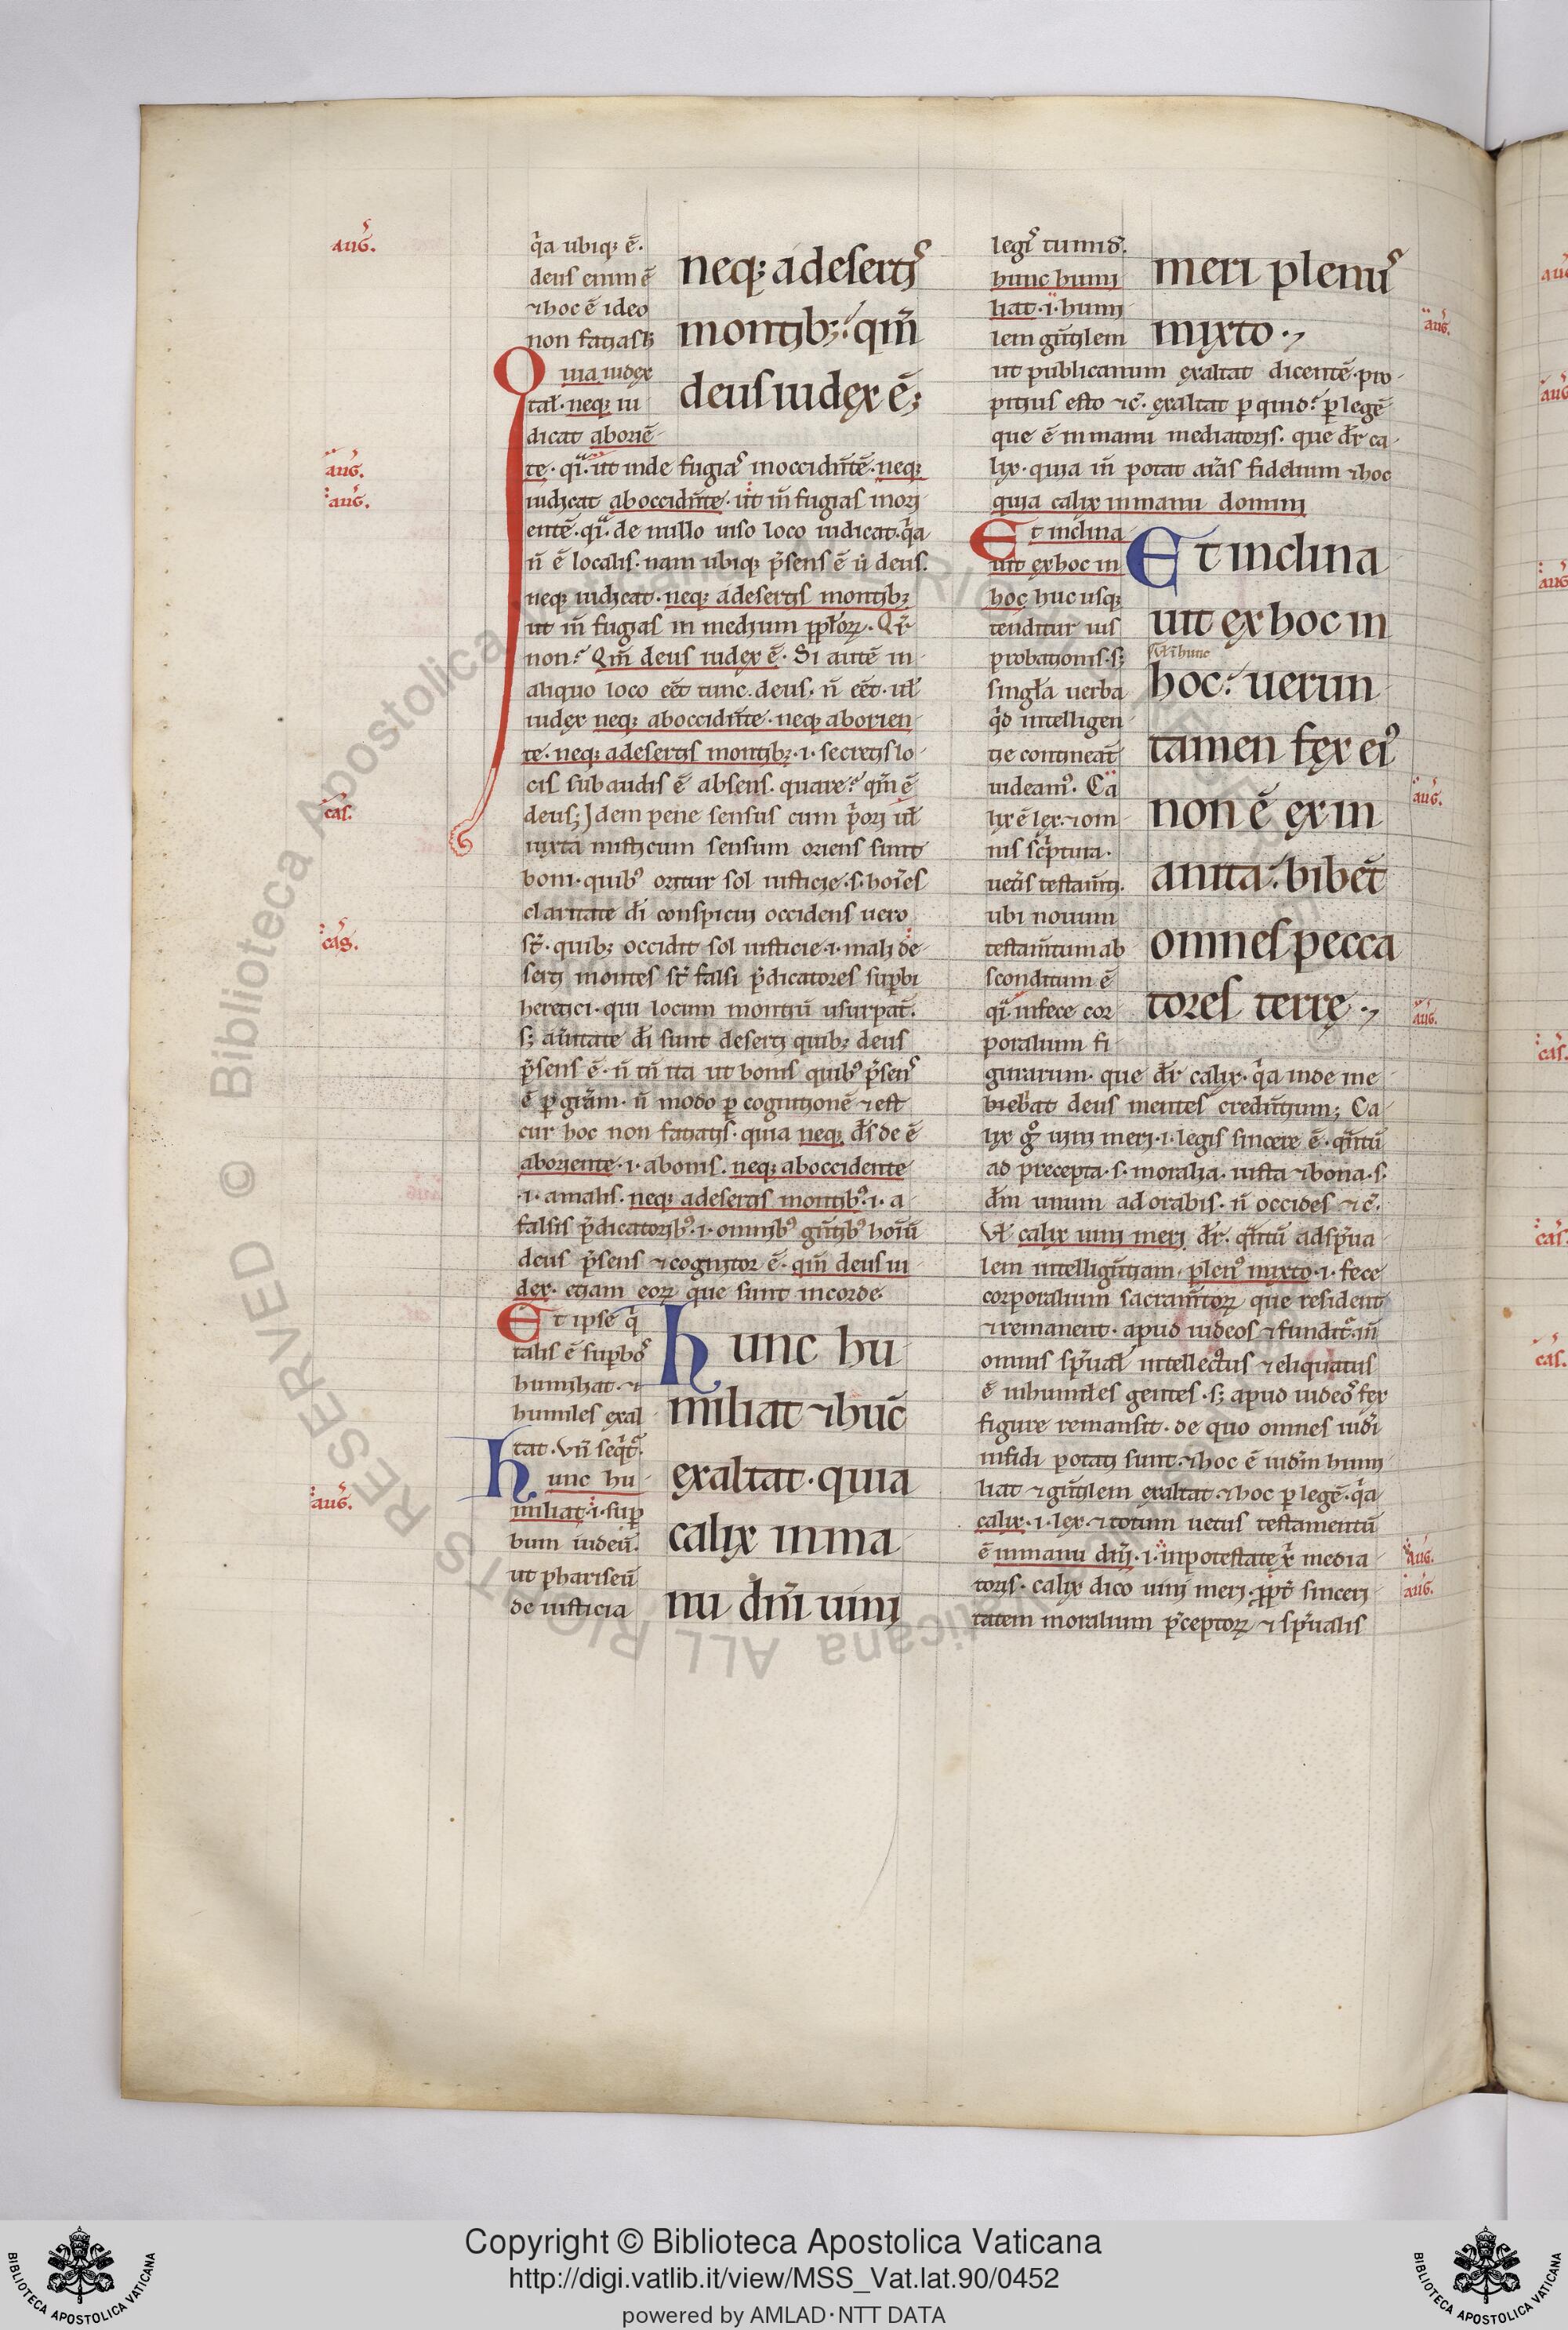 aug̃.
q̃a ubiq; ẽ.
deus enim ẽ
⁊ hoc ẽ ideo
non fatias b;
Quia iudex
tał. neq; iu
dicat ab oriẽ
neq; a desertis
montib;: qm̃
deus iudex ẽ;
te. qͣ. ut inde fugiaˢ in occidñtẽ. neq;
iudicat ab occidñte. ut iñ fugias in ori
entẽ. qͣ. de nullo uiso loco iudicat. q̃a
ñ ẽ localis. nam ubiq; p̃sens ẽ ů deus.
neq; iudicat. neq; a desertis montib;
ut iñ fugias in medium ꝓpł'oꝝ. Qr̃
non? Qm̃ deus iudex ẽ. Si autẽ in
aliquo loco eẽt tunc. deus. ñ eẽt. uł
iudex neq; ab occidñte. neq; ab orien
te. neq; a desertis montib;. i. secretis lo
cis subaudis ẽ absens. quare? qm̃ ẽ
deus; Idem pene sensus cum p̃ori uł
iuxta misticum sensum oriens sunt
boni. quibꝰ oritur sol iusticie. s. hoĩes
claritate dĩ conspicui occidens uero
st̃. quib; occidit sol iusticie. i. mali de
serti montes st̃ falsi p̃dicatores supbi
heretici. qui locum montiũ usurpãt.
s; a ũitate dĩ sunt deserti quib; deus
p̃sens ẽ. ñ tñ ita ut bonis quibꝰ p̃senˢ
ẽ ꝑ gr̃am. ñ modo ꝑ cognitionẽ ⁊ est
cur hoc non fatiatis. quia neq; d̃s de ẽ
ab oriente. i. a bonis. neq; ab occidente
.i. a malis. neq; a desertis montibꝰ. i. a
falsis p̃dicatoribꝰ. i. omnibꝰ gñtibꝰ hoĩũ
deus p̃sens ⁊ cognitor ẽ. qm̃ deus iu
dex. etiam eoꝝ que sunt in corde.
Et ipse q̃
talis ẽ supboˢ
humiliat. ⁊
humiles exal
tat. Vñ seq̃t᷑.
Hunc hu
miliat. i. suꝑ
bum iudeũ.
ut phariseũ
de iusticia
Hunc hu
miliat ⁊ hũc
exaltat. quia
calix in ma
nu dñi uini
aug̃.
aug̃.
cas̃.
cas̃.
aug̃.
legiˢ tumid᷑.
hunc humi
liat. i. humi
lem gñtilem
meri plenuˢ
mixto.,
ut publicanum exaltat dicentẽ. pro
pitius esto ⁊ c̃. exaltat ꝑ quid? ꝑ legẽ
que ẽ in manu mediatoris. que dr̃ ca
lix. quia iñ potat aĩas fidelium ⁊ hoc
quia calix in manu domini
Et inclina
uit ex hoc in
hoc huc usq;
tenditur uis
probationis. s;
singl'a uerba
q̃d intelligen
tie contineãt
uideamꝰ. Ca
lix ẽ lex ⁊ om
nis sc̃ptura
uet̃is testam̃ti.
ubi nouum
testam̃tum ab
sconditum ẽ
qͣ. in fece cor
poralium fi
Et inclina
uit ex hoc in
hoc: uerun
tamen fex eiꝰ
non ẽ exin
anita: bibẽt
omnes pecca
tores terrę.,
gurarum. que dr̃ calix. q̃a inde ine
briebat deus mentes credñtium; Ca
lix g̊ uini meri. i. legis sincere ẽ. qñtũ
ad precepta. s. moralia. iusta ⁊ bona. s.
dm̃ unum adorabis. ñ occides ⁊ c̃.
Vł calix uini meri dr̃. qñtũ ad sp̃ua
lem intelligñtiam. plenꝰ mixto. i. fece
corporalium sacram̃toꝝ que resident
⁊ remanent. apud iudeos ⁊ fundit᷑. iñ
omnis sp̃ual' intellectus ⁊ eliquatus
ẽ in humiles gentes. s; apud iudeoˢ fex
figure remansit. de quo omnes iudi
infidi potati sunt. ⁊ hoc ẽ iud̃m humi
liat ⁊ gñtilem exaltat. ⁊ hoc ꝑ legẽ. q̃a
calix. i. lex ⁊ totum uetus testamentũ
ẽ in manu dñi. i. in potestate x̃ media
toris. calix dico uini meri. ꝓpt̃ sinceri
tatem moralium p̃ceptoꝝ ⁊ sp̃ualis
aug̃.
aug̃.
aug̃.
aug̃.
aug̃.
Copyright © Biblioteca Apostolica Vaticana
http://digi.vatlib.it/view/MSS_Vat.lat.90/0452
powered by AMLAD·NTT DATA
BIBLIOTECA APOSTOLICA VATICANA
BIBLIOTECA APOSTOLICA VATICANA